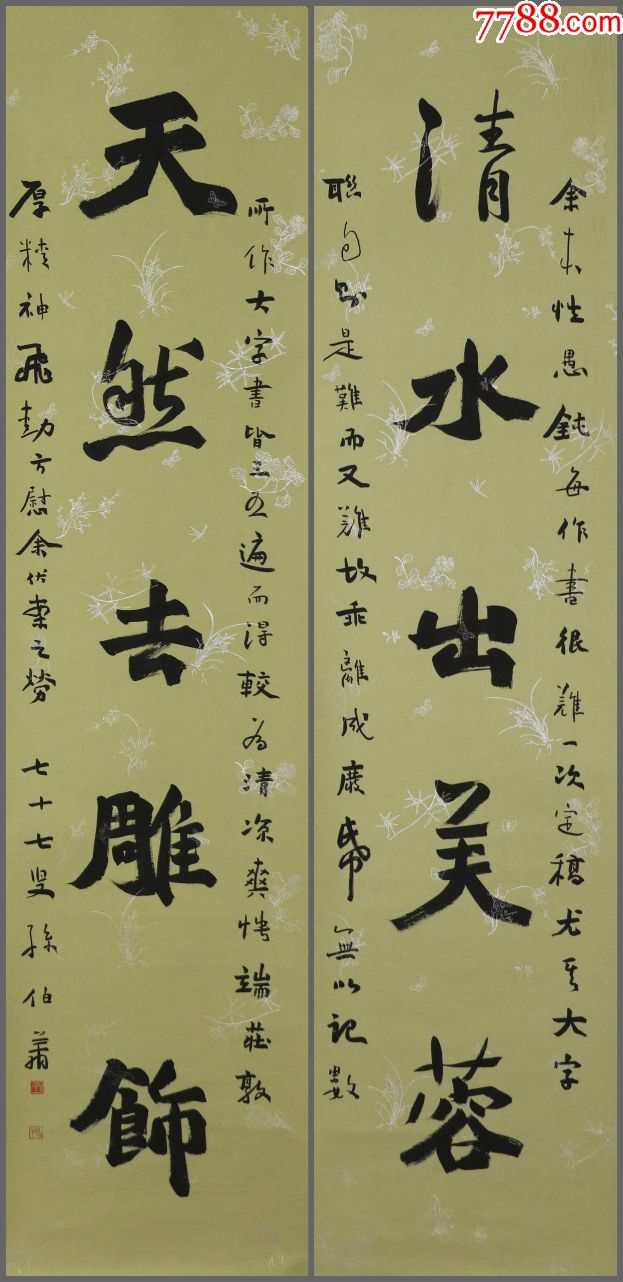 7788.com
清水出美蓉
余本性愚鈍每作書很難一次定稿尤其大字
聯句則是難而又難故乖離成廢幣無以記數
天然去雕飾
所作大字書皆三五遍而得較為清涼爽快端莊敦
厚精神飛動方慰余伏案之勞 七十七叟孫伯